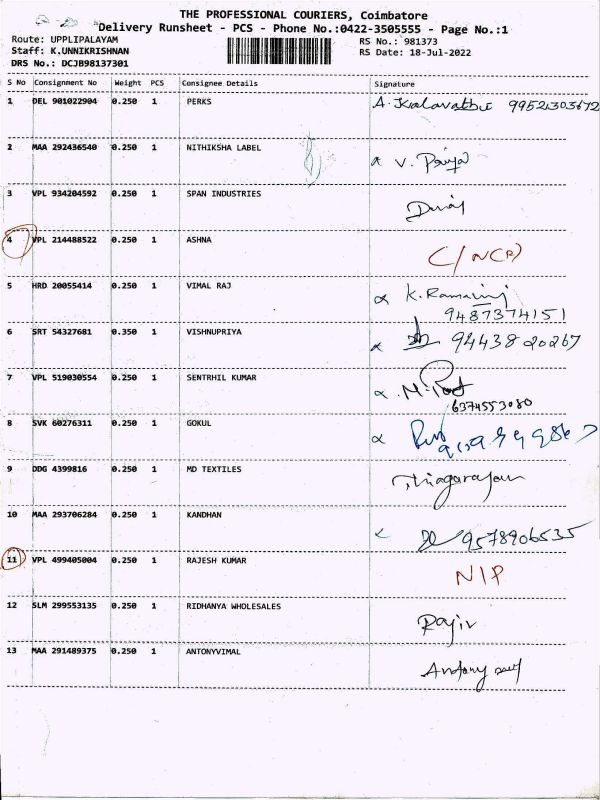 THE PROFESSIONAL COURIERS, Coimbatore
Delivery Runsheet - PCS - Phone No.:0422-3505555 - Page No.:1
Route: UPPLIPALAYAM RS No.: 981373
Staff: K.UNNIKRISHNAN RS Date: 18-Jul-2022
DRS No.: DCJB98137301
S No Consignment No Weight PCS Consignee Details Signature
1 DEL 901022904 0.250 1 PERKS
2 MAA 292436540 0.250 1 NITHIKSHA LABEL V. Priya
3 VPL 934204592 0.250 1 SPAN INDUSTRIES
4 VPL 214488522 0.250 1 ASHNA
5 HRD 20055414 0.250 1 VIMAL RAJ
9487374151
6 SRT 54327681 0.350 1 VISHNUPRIYA 94438 20267
7 VPL 519030554 0.250 1 SENTRHIL KUMAR
6374553080
8 SVK 60276311 0.250 1 GOKUL
9 DDG 4399816 0.250 1 MD TEXTILES Thiagarajan
10 MAA 293706284 0.250 1 KANDHAN 9578906535
11 VPL 499405004 0.250 1 RAJESH KUMAR N/P
12 SLM 299553135 0.250 1 RIDHANYA WHOLESALES Rajiv
13 MAA 291489375 0.250 1 ANTONYVIMAL Antony